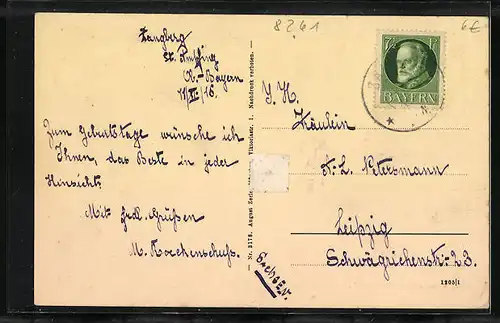 8261
6£
Zangberg
Ob.-Bayern
11/VI/16.
Zum Geburtstage wünsche ich
Ihnen, das Beste in jeder
Hinsicht.
Mit frdl. Grüßen
M.
7½
BAYERN
Fräulein
Petersmann
Leipzig
Schwägrichenstr. 23.
Sachsen.
Nr. 2178. August Zerle, Nachdruck verboten.
1205/1